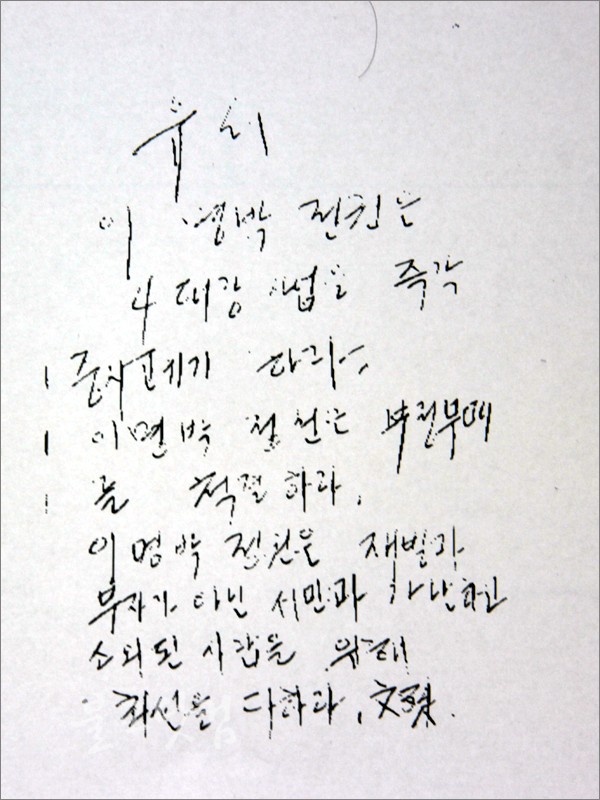 유서
이 명박 정권은
4 대강 사업을 즉각
중지 폐기 하라.
이명박 정권은 부정부패
를 척결하라.
이명박 정권은 재벌과
부자가 아닌 서민과 가난하고
소외된 사람을 위해
최선을 다하라. 文殊.